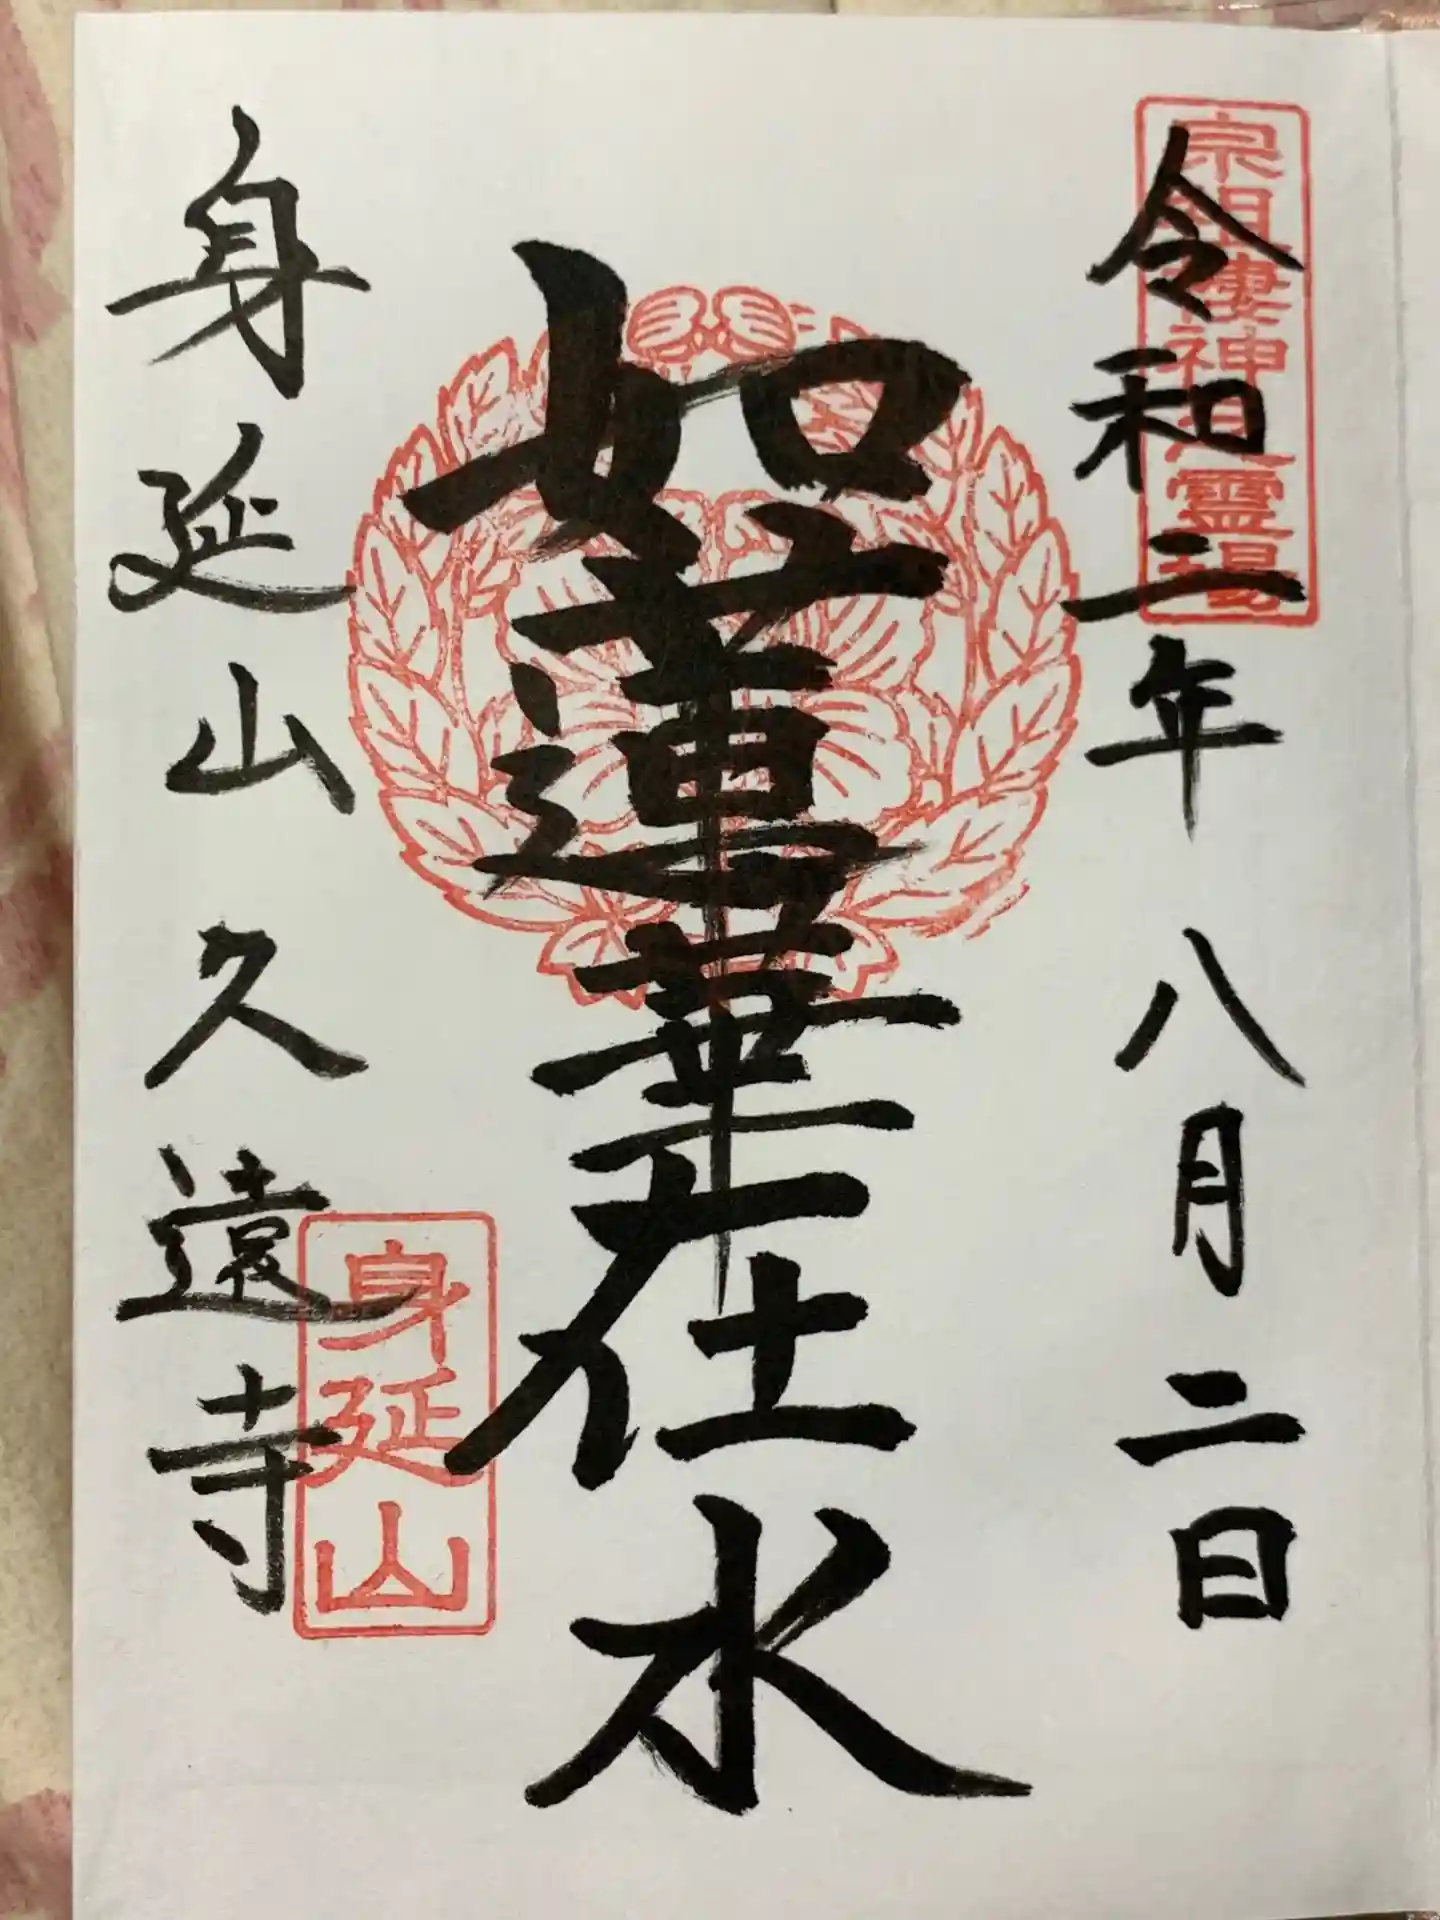 宗門棲神之霊場
令和二年八月二日
如蓮華在水
身延山
身延山久遠寺